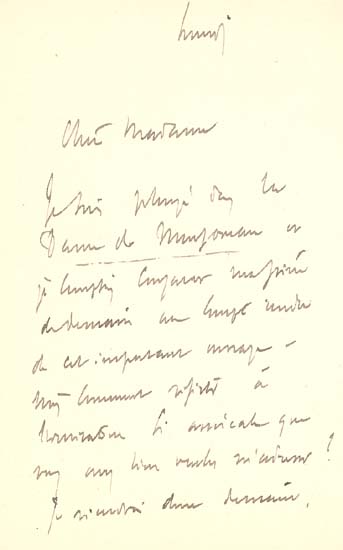 Lundi
Chère Madame
Je suis plongé dans la
Dame de Monsoreau et
je comptais consacrer ma soirée
de demain au compte rendu
de cet important ouvrage –
mais comment résister à
l'invitation si amicale que
vous avez bien voulu m'adresser ?
Je viendrai donc demain,